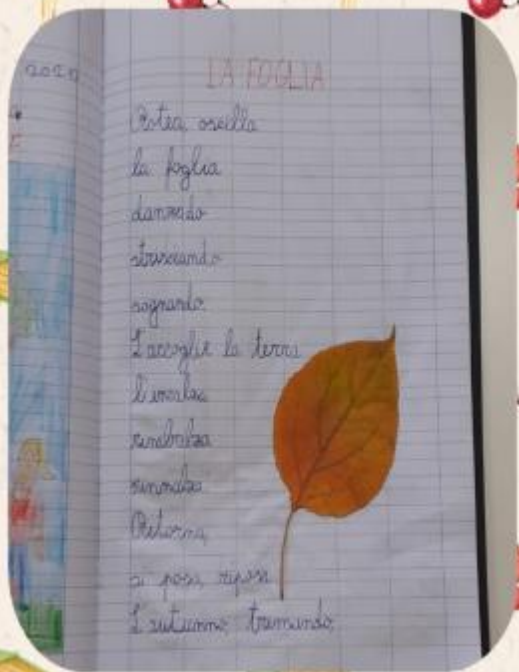 2020
LA FOGLIA
Rotea, oscilla
la foglia
danzado
strisciando
sognando.
L'accoglie la terra
l'incalza
rimbalza
rinnalza
Ritorna,
si posa, riposa
L'autunno, tremando.